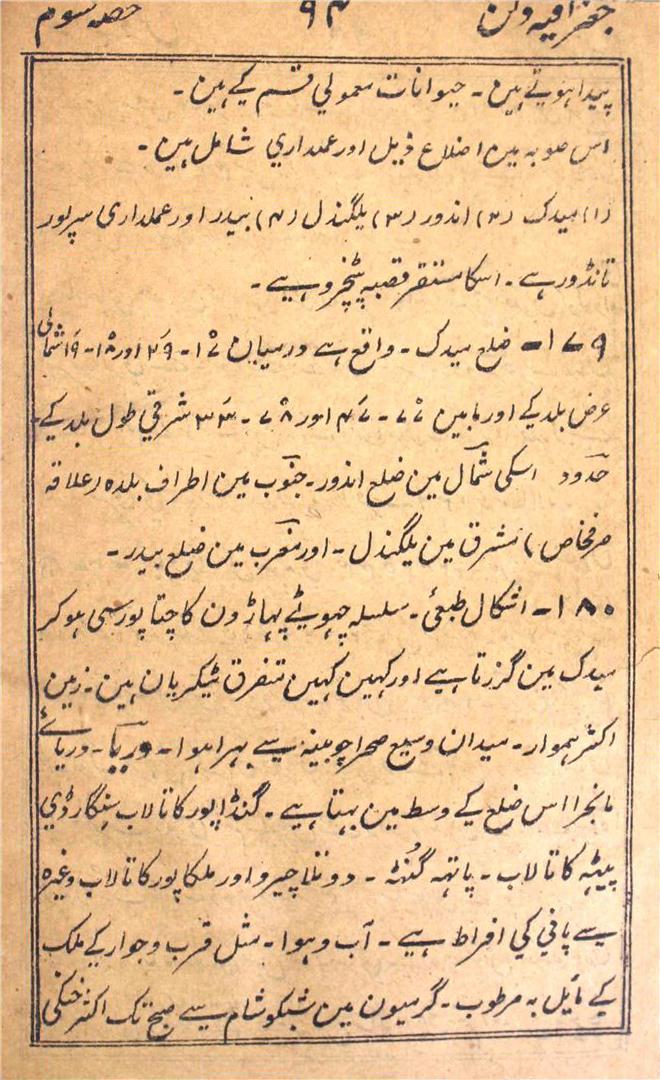 جغرافیہ دکن ۹۴ حصہ سوم
پیدا ہوتے ہین ۔ حیوانات معمولي قسم کے ہین ۔
اس صوبہ مین اضلاع ذیل اور عملداري شامل ہین ۔
(۱) میدک (۲) اندور (۳) یلگندل (۴) بیدر اور عملداری سرپور
تانڈور ہے ۔ اسکا مستقر قصبہ پٹنچرو ہے ۔
۱۷۹ ۔ ضلع میدک ۔ واقع ہے درمیان ۱۷ ۔ ۲۹ اور ۱۸ ۔ ۱۹ شمالی
عرض بلد کے اور مابین ۷۷ ۔ ۴۷ اور ۷۸ ۔ ۳۳ شرقي طول بلد کے ۔
حدود اسکی شمال مین ضلع اندور ۔ جنوب مین اطراف بلدہ (علاقہ
صرفخاص) مشرق مین یلگندل ۔ اور مغرب مین ضلع بیدر ۔
۱۸۰ ۔ اشکال طبعی ۔ سلسلہ چہوٹے پہاڑون کا چتاپور سی ہو کر
میدک مین گزرتا ہے اور کہین کہین متفرق ٹیکریان ہین ۔ زمین
اکثر ہموار ۔ میدان وسیع صحرا چوبینہ سے بہرا ہوا ۔ دریا ۔ دریائے
مانجرا اس ضلع کے وسط مین بہتا ہے ۔ گنڈاپور کا تالاب سنگارڈي
پیٹہہ کا تالاب ۔ پاتہہ گنٹہ ۔ چیرو اور ملکاپور کا تالاب وغیرہ
سے پاني کي افراط ہے ۔ آب و ہوا ۔ مثل قرب و جوار کے ملک
کے مایل بہ مرطوب ۔ گرمیون مین شبکو شام سے صبح تک اکثر خنکی